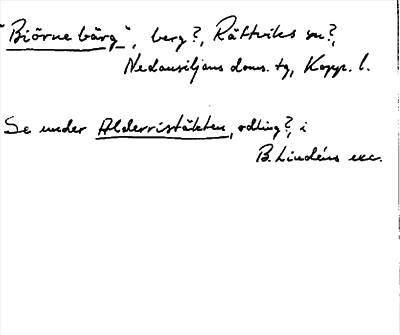 "Biörne bärg", berg?, Rättviks sn?,
Nedansiljans doms. tg, Kopp. l.
Se under Alderristäkten, odling?, i
B. Lindéns exc.